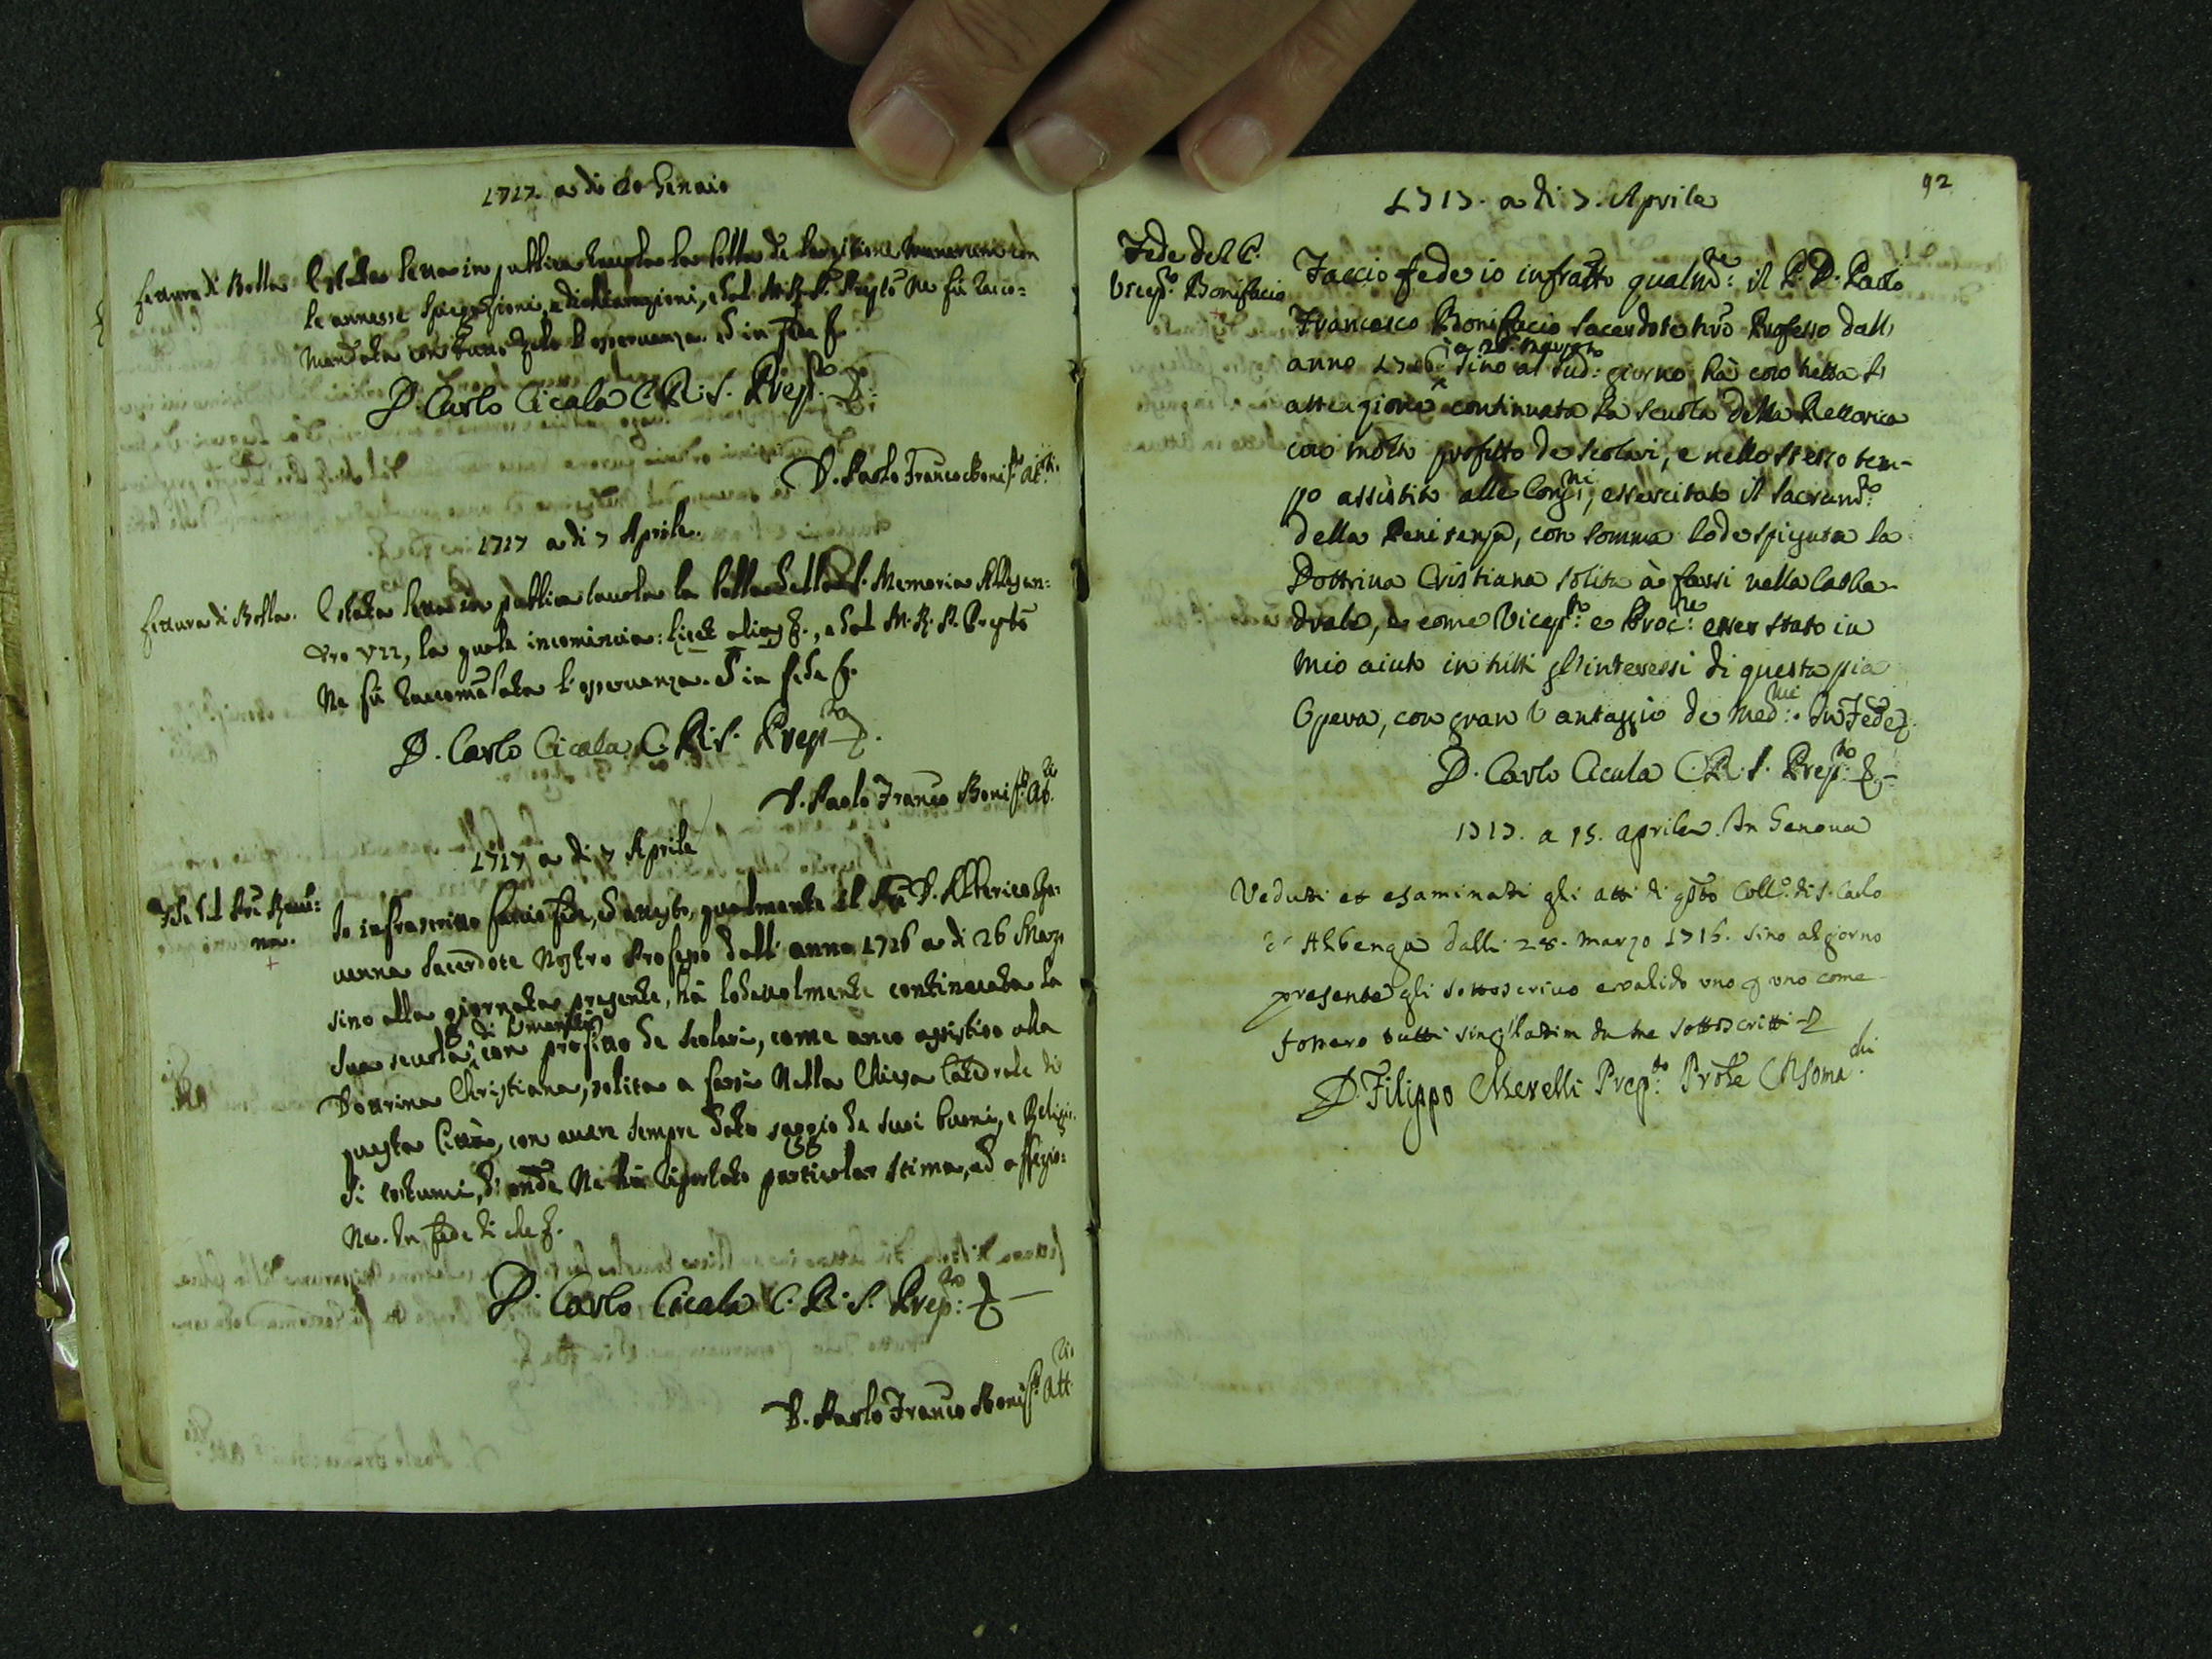 1717. a di 20 Genaio
Lettura di Bolla. È stata letta in publica tauola la bolla de largitione munerum con
le annesse spiegazioni, e dichiarazioni, e dal M. R. P. Prep.to ne fù racco=
mandata con suo zelo l'osseruanza. Et in fede &.
D. Carlo Cicala C. R. S. Prep.to
D. Paolo Franco Bonif.o Att.
1717 a di 7 Aprile.
Lettura di Bolla. È stata letta in publica tauola la bolla della S. Memoria Alesan=
dro VII, la quale incomincia: licet alias &., e dal M. R. P. Prep.to
ne fù raccomãdata l'osseruanza. Et in fede &.
D. Carlo Cicala C. R. S. Prep.to
D. Paolo Franco Bonif.o Att.
1717 a di 7 Aprile
Fede del Pre
na.
Io infrascritto faccio fede, ed attesto, qualmente il Pre D. Alberico
uenna Sacerdote Nostro Professo dall'anno 1716 a di 26 Marzo
sino alla giornata presente, hà lodeuolmente continuata la
di humanità
sua scuola, con profitto de scolari, come anco assistito alla
Dottrina Christiana, solita a farsi nella Chiesa Catedrale di
questa Città, con auere sempre dato saggio de suoi buoni, e Religio
si costumi, di onde ne hà riportato particolar stima, ed affezio=
ne. In fede di che &.
D. Carlo Cicala C. R. S. Prep.to
D. Paolo Franco Bonif.o Att.
92
1717. a di 7. Aprile
Fede del P.
Vicep.to Bonifacio
Faccio fede io infratto qualm.te il P. D. Paolo
Francesco Bonifacio Sacerdote nr̃o Professo dall'
a 28. Marzo
anno 1716 sino al sud.o giorno hà con tutta l'
attenzione continuata la scuola della Rettorica
con molto profitto de scolari, e nello stesso tem-
po assistito alle Con.ni, essercitato il sacram.to
della Penitenza, con somma lode spiegata la
Dottrina Cristiana solita à farsi nella Catte-
drale, e come Vicep.to e Proc.re esser stato in
mio aiuto in tutti gl'interessi di questa pia
Opera, con gran vantaggio de med.mi. In Fede &.
D. Carlo Cicala C. R. S. Prep.to
1717. a 15. aprile. In Genoua
Veduti et esaminati gli atti di q.sto Coll.o di S. Carlo
d'Albenga dalli 28. marzo 1716. sino al giorno
presente gli sottoscriuo e valido uno p uno come
fossero tutti singillatim da me sottoscritti
D. Filippo Merelli Prep.to Prõle C R Soma.chi